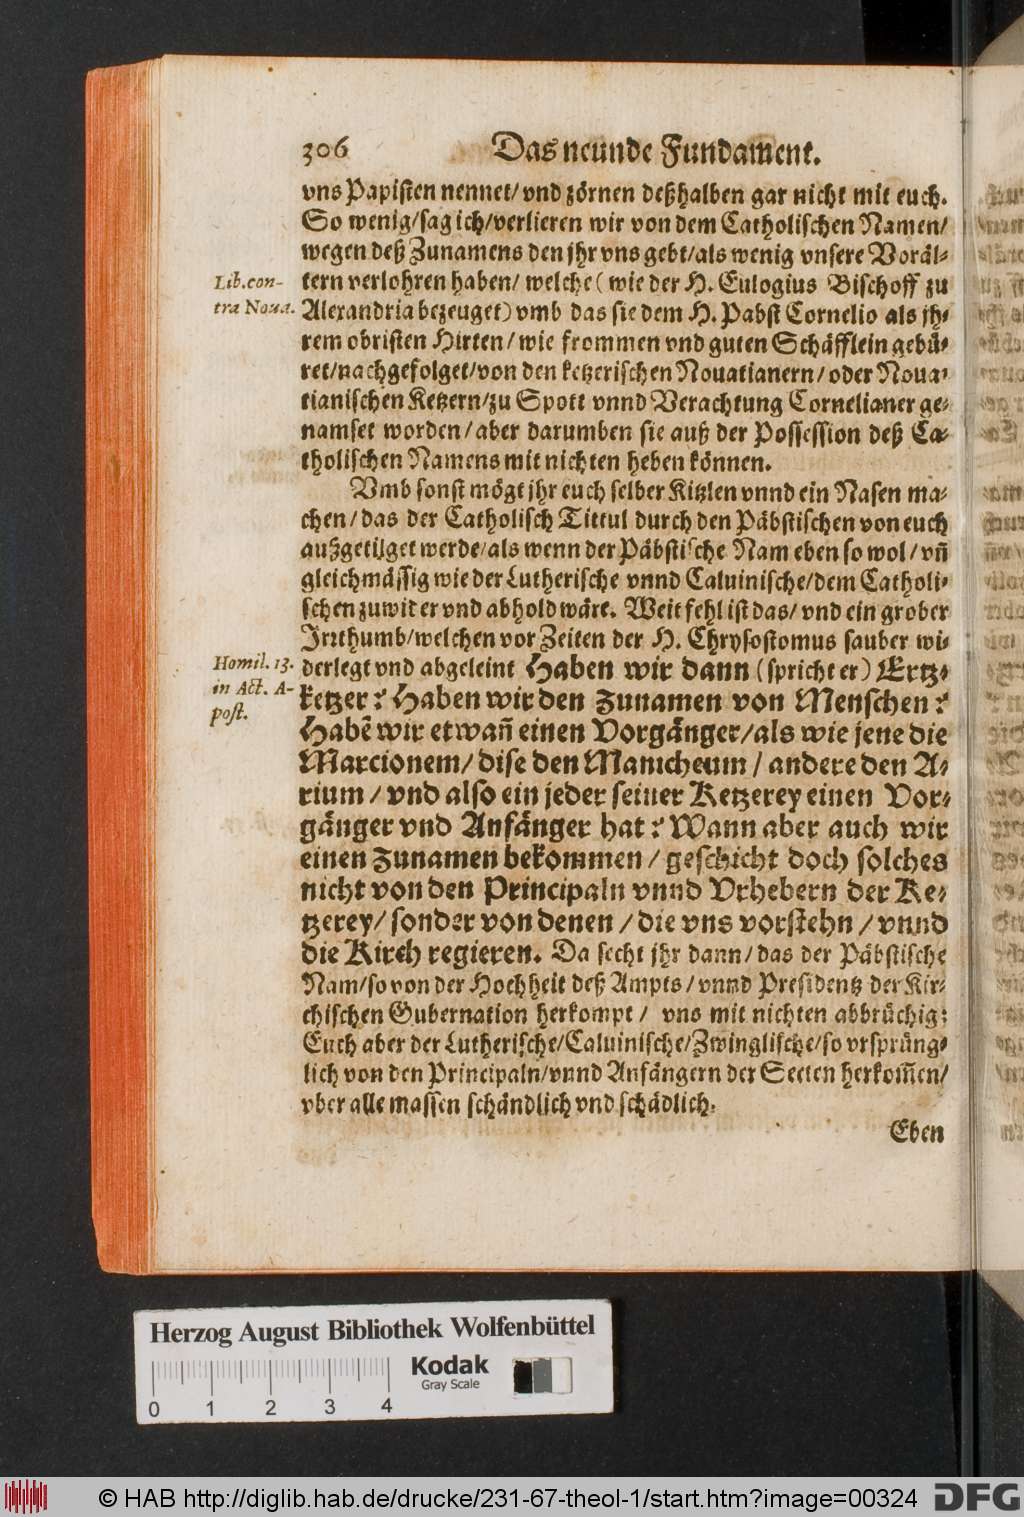 306 Das neunde Fundament.
vns Papisten nennet/ vnd zörnen deßhalben gar nicht mit euch.
So wenig/ sag ich/ verlieren wir von dem Catholischen Namen/
wegen deß Zunamens den jhr vns gebt/ als wenig vnsere Voräl-
Lib. con-
tra Noua.
tern verlohren haben/ welche ( wie der H. Eulogius Bischoff zu
Alexandria bezeuget) vmb das sie dem H. Pabst Cornelio als jh-
rem obristen Hirten/ wie frommen vnd guten Schäfflein gebü-
ret/ nachgefolget/ von den ketzerischen Nouatianern/ oder Noua-
tianischen Ketzern/ zu Spott vnnd Verachtung Cornelianer ge-
namset worden/ aber darumben sie auß der Possession deß Ca-
tholischen Namens mit nichten heben können.
Vmb sonst mögt jhr euch selber Kitzlen vnnd ein Nasen ma-
chen/ das der Catholisch Tittul durch den Päbstischen von euch
außgetilget werde/ als wenn der Päbstische Nam eben so wol/ vñ
gleichmässig wie der Lutherische vnnd Caluinische/ dem Catholi-
schen zuwider vnd abhold wäre. Weit fehl ist das/ vnd ein grober
Irrthumb/ welchen vor Zeiten der H. Chrysostomus sauber wi-
Homil. 13.
in Act. A-
post.
derlegt vnd abgeleint Haben wir dann (spricht er) Ertz-
ketzer? Haben wir den Zunamen von Menschen?
Habẽ wir etwañ einen Vorgänger/ als wie jene die
Marcionem/ dise den Manicheum/ andere den A-
rium/ vnd also ein jeder seiner Ketzerey einen Vor-
gänger vnd Anfänger hat? Wann aber auch wir
einen Zunamen bekommen/ geschicht doch solches
nicht von den Principaln vnnd Vrhebern der Ke-
tzerey/ sonder von denen/ die vns vorstehn/ vnnd
die Kirch regieren. Da secht jhr dann/ das der Päbstische
Nam/ so von der Hochheit deß Ampts/ vnnd Presidentz der Kir-
chischen Gubernation herkompt/ vns mit nichten abbrüchig:
Euch aber der Lutherische/ Caluinische/ Zwinglische/ so vrspräng-
lich von den Principaln/ vnnd Anfängern der Secten herkom̃en/
vber alle massen schändlich vnd schädlich.
Eben
Herzog August Bibliothek Wolfenbüttel
Kodak
Gray Scale
0 1 2 3 4
© HAB http://diglib.hab.de/drucke/231-67-theol-1/start.htm?image=00324
DFG